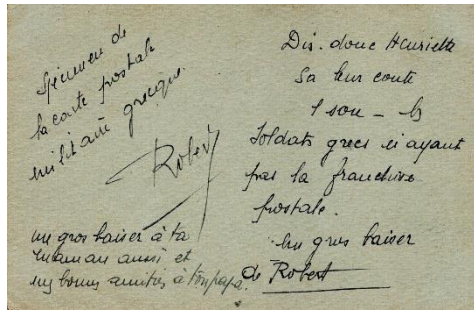 Spécimen de
la carte postale
militaire grecque.
Robert
un gros baiser à ta
maman aussi et
mes bonnes amitiés à ton papa.
Dis. donc Henriette
Sa leur coute
1 sou – les
Soldats grecs n'ayant
pas la franchise
postale.
Un gros baiser
de Robert